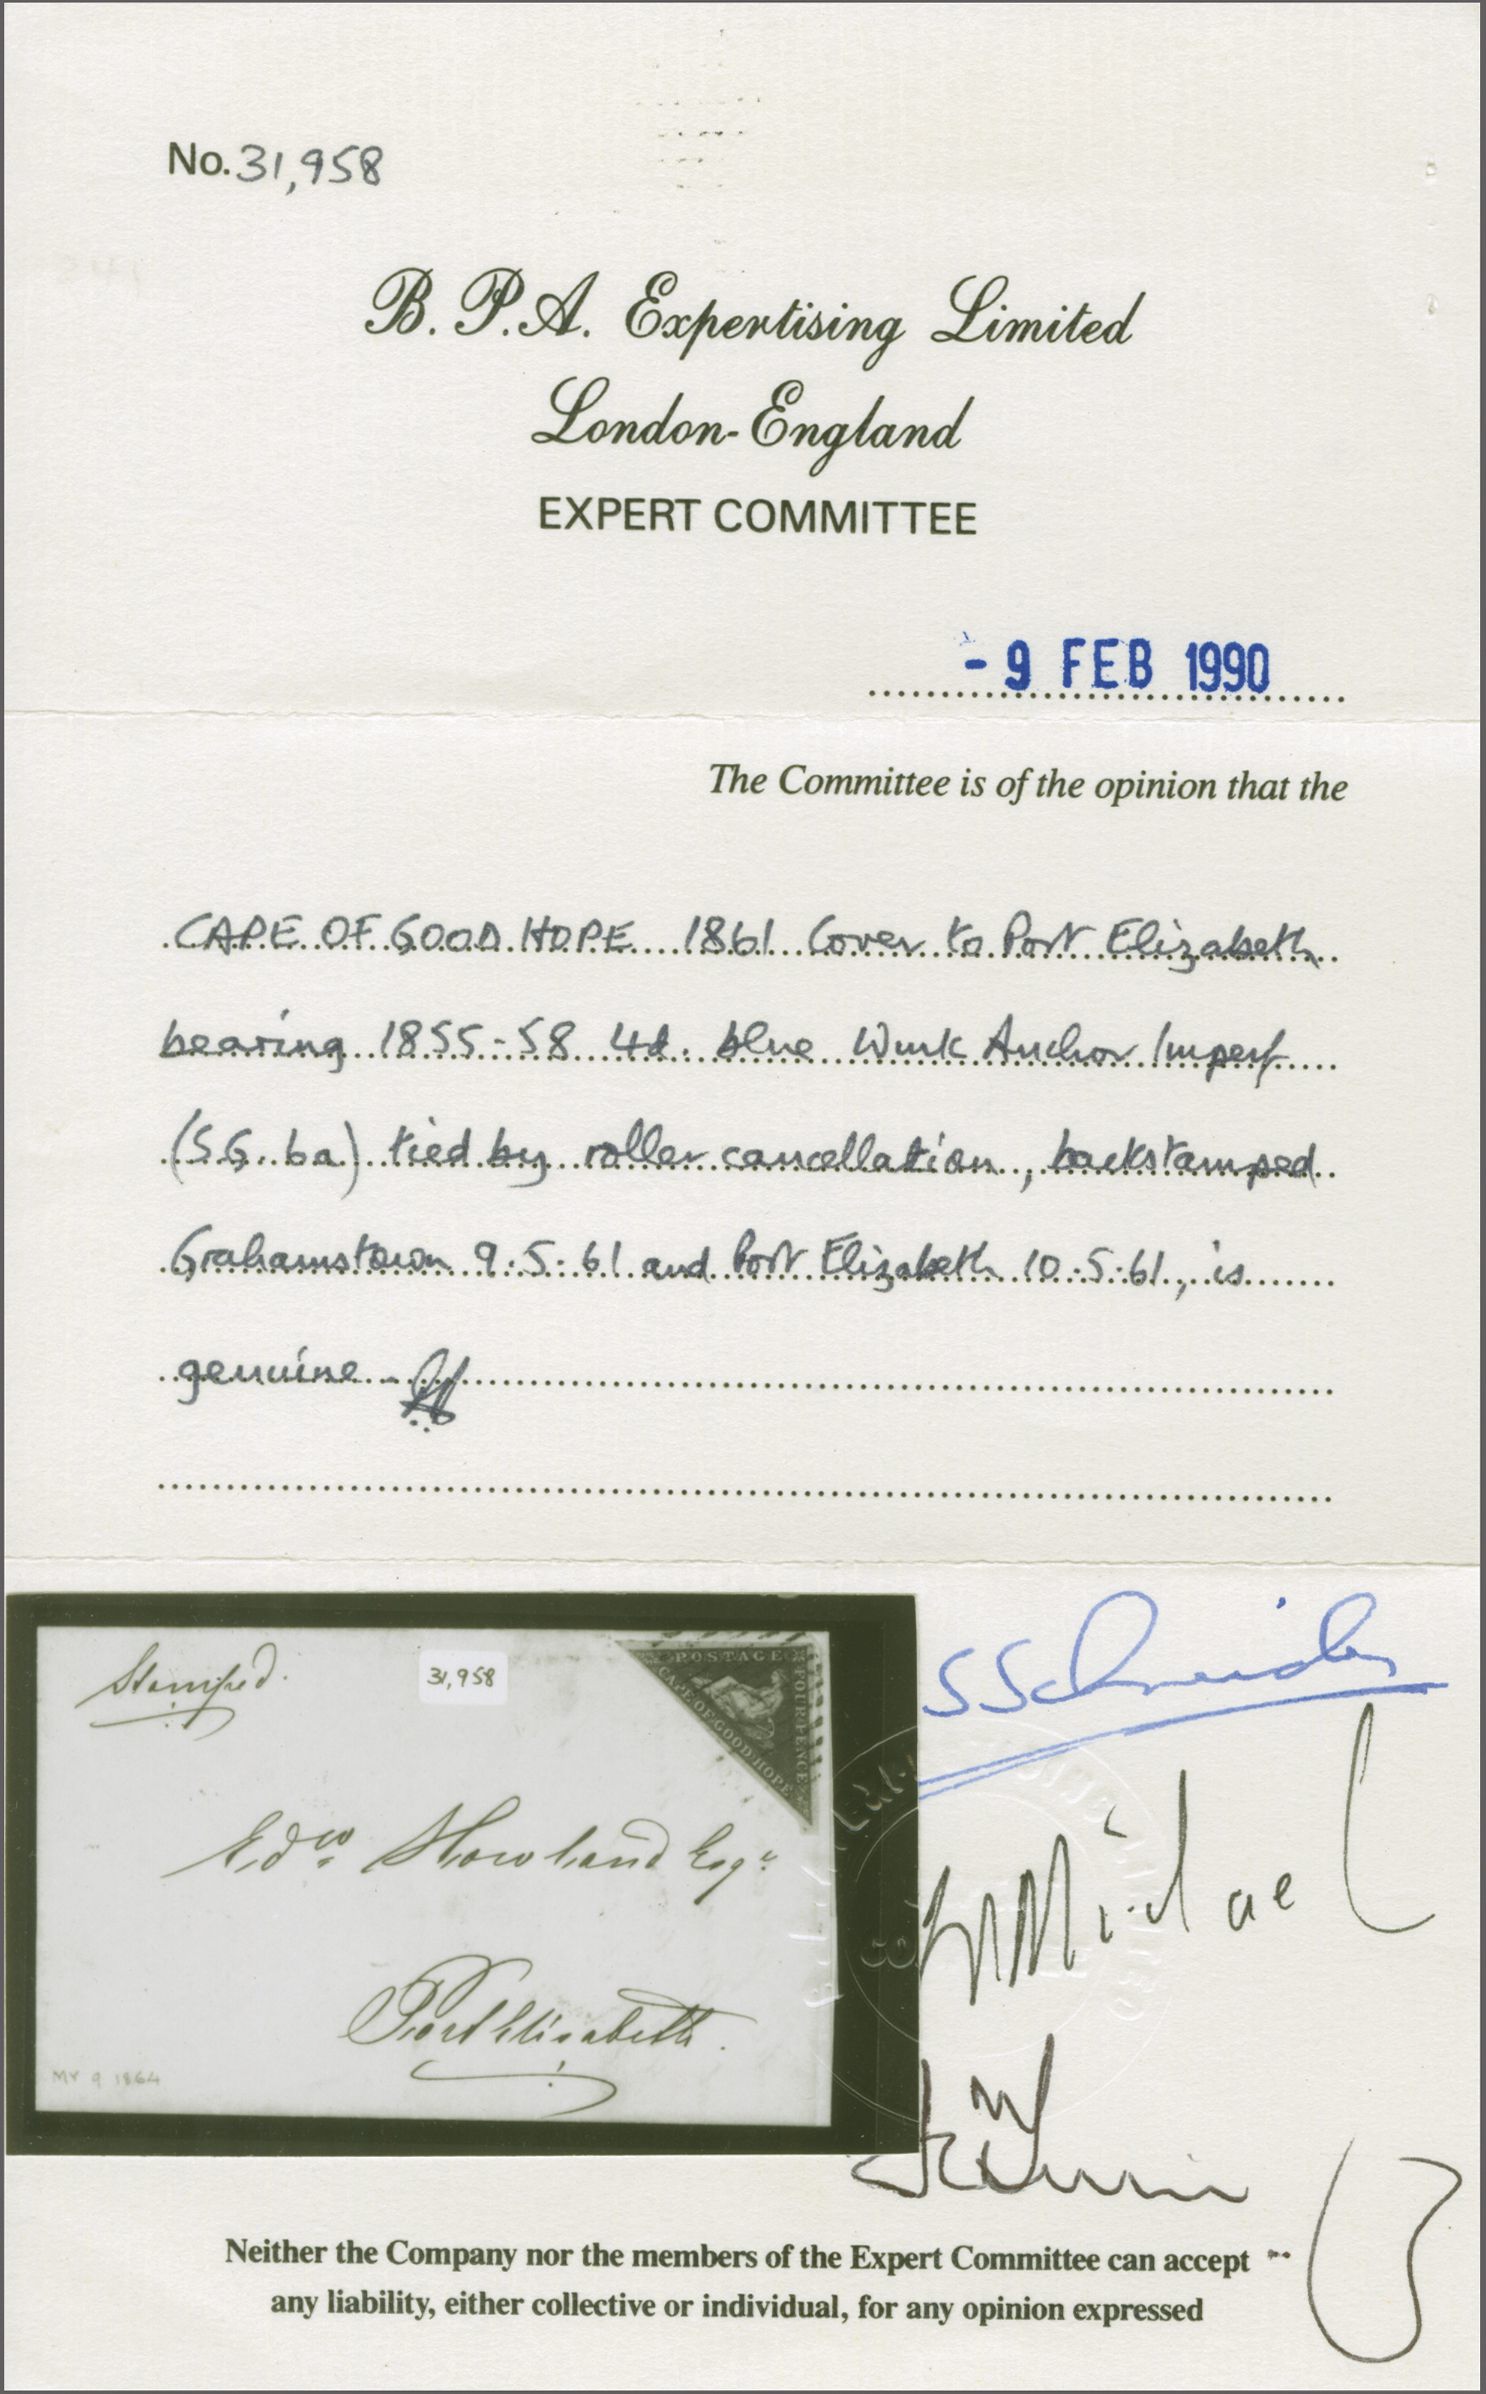 No. 31,958
B. P. A. Expertising Limited
London-England
EXPERT COMMITTEE
- 9 FEB 1990
The Committee is of the opinion that the
CAPE OF GOOD HOPE 1861 Cover to Port Elizabeth
bearing 1855-58 4d. blue Wmk Anchor Imperf
(SG. 6a) tied by roller cancellation, backstamped
Grahamstown 9.5.61 and Port Elizabeth 10.5.61, is
genuine.
Stamped.
31,958
POSTAGE
FOUR PENCE
CAPE OF GOOD HOPE
Edwd. Howland Esqr
Port Elizabeth.
MY 9 1864
SSchneider
Michael
Neither the Company nor the members of the Expert Committee can accept
any liability, either collective or individual, for any opinion expressed